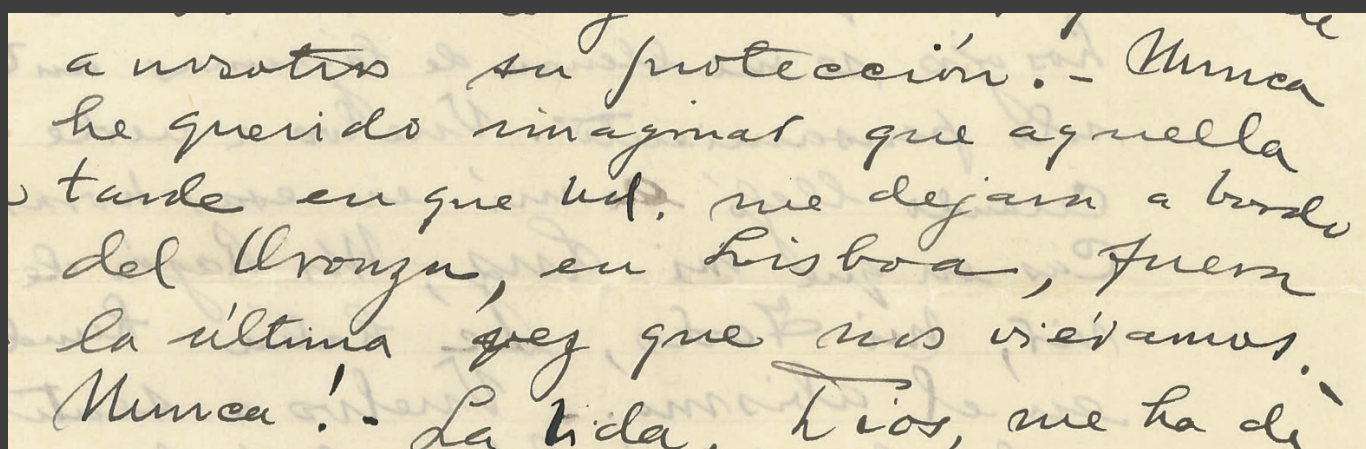 a nosotros su protección.- Nunca
he querido imaginar que aquella
tarde en que Ud. me dejara a bordo
del Oronza, en Lisboa, fuera
la última vez que nos viéramos.
Nunca!.- La vida, Dios, me ha de